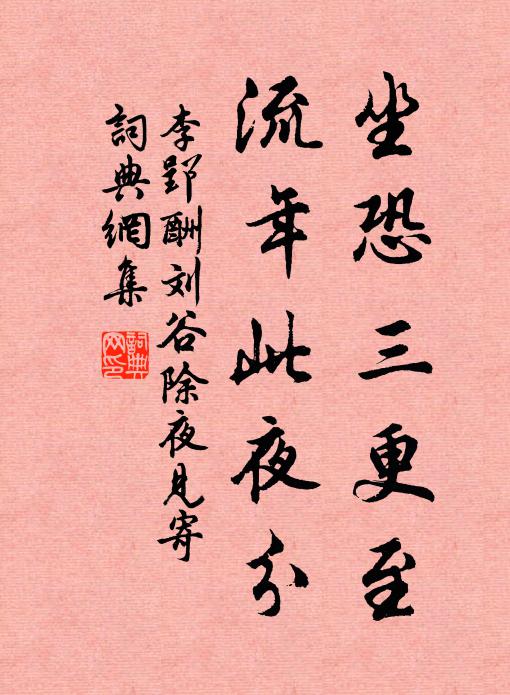 坐恐三更至
流年此夜分
李郢酬刘谷除夜見寄
詞典網集
詞典网印